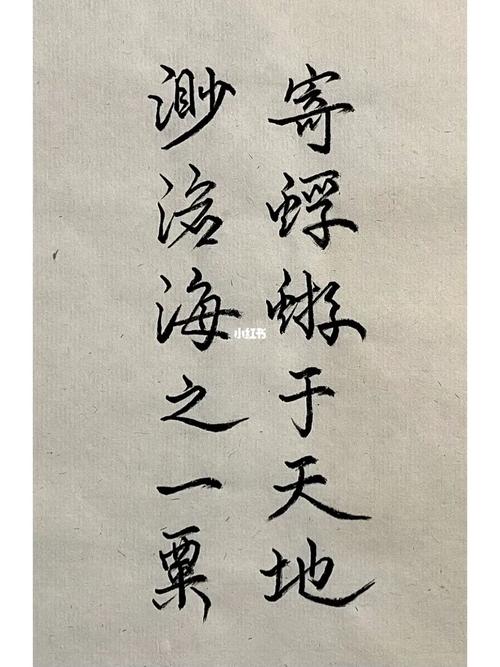 寄蜉蝣于天地
渺沧海之一粟
小红书